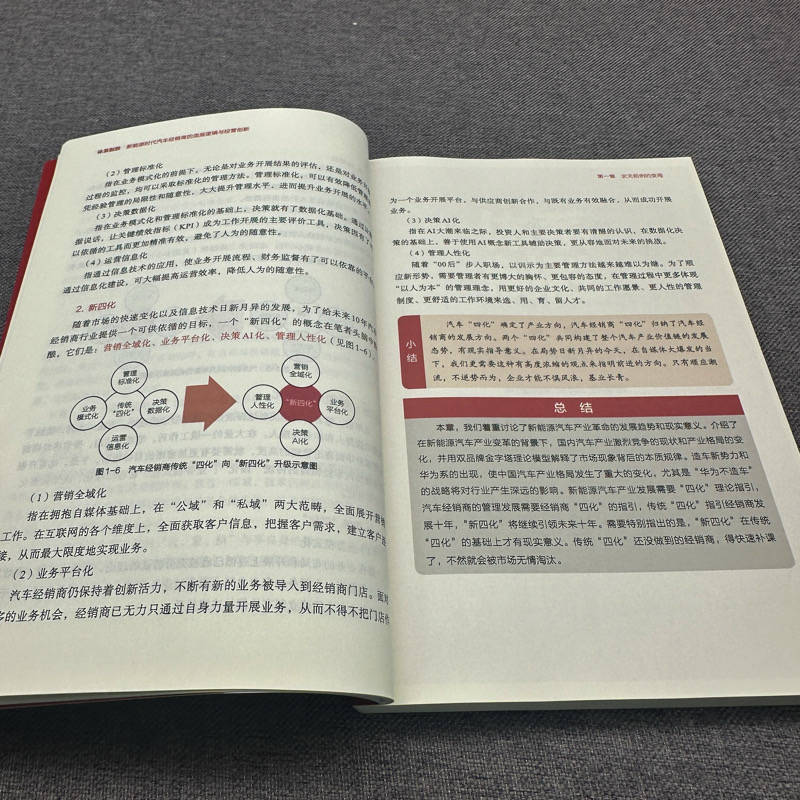 新能源时代汽车经销商的底层逻辑与经营创新
（2）管理标准化
指在业务模式化的前提下，无论是对业务开展结果的评估，还是对业务
过程的监控，均可以采取标准化的管理方法。管理标准化，可以有效降低管理
凭经验管理的局限性和随意性，大大提升管理水平，进而提升业务开展的水
（3）决策数据化
指在业务模式化和管理标准化的基础上，决策就有了数据化基础。通过
据说话，让关键绩效指标（KPI）成为工作开展的主要评价工具，决策因有了
以依循的工具而更加精准有效，避免了人为的随意性。
（4）运营信息化
指透过信息技术的应用，使业务开展流程、财务监督有了可以依靠的平台
通过信息化建设，可大幅提高运营效率，降低人为的随意性。
2. 新四化
随着市场的快速变化以及信息技术日新月异的发展，为了给未来10年内
经销商行业提供一个可供依循的目标，一个“新四化”的概念在笔者头脑中
酿，它们是：营销全域化、业务平台化、决策AI化、管理人性化（见图1-6）。
管理
标准化
业务
模式化
传统
“四化”
决策
数据化
运营
信息化
营销
全域化
管理
人性化
“新四化”
业务
平台化
决策
AI化
图1-6 汽车经销商传统“四化”向“新四化”升级示意图
（1）营销全域化
指在拥抱自媒体基础上，在“公域”和“私域”两大范畴，全面展开营销
工作。在互联网的各个维度上，全面获取客户信息，把握客户需求，建立客户连
接，从而最大限度地实现业务。
（2）业务平台化
汽车经销商仍保持着创新活力，不断有新的业务被导入到经销商门店。面对
多的业务机会，经销商已无力只通过自身力量开展业务，从而不得不把门店作
第一章 史无前例的变局
为一个业务开展平台，与供应商创新合作，与既有业务有效融合，从而成功开展
业务。
（3）决策AI化
指在AI大潮来临之际，投资人和主要决策者要有清醒的认识，在数据化决
策的基础上，善于使用AI概念新工具辅助决策，更从容地面对未来的挑战。
（4）管理人性化
随着“00后”步入职场，以训示为主要管理方法越来越难以为继。为了顺
应新形势，需要管理者有更博大的胸怀、更包容的态度，在管理过程中更多体现
“以人为本”的管理理念，用更好的企业文化、共同的工作愿景、更人性的管理
制度、更舒适的工作环境来选、用、育、留人才。
小结
汽车“四化”确定了产业方向，汽车经销商“四化”归纳了汽车经
销商的发展方向。两个“四化”共同构建了整个汽车产业价值链的发展
态势，有现实指导意义。在局势日新月异的今天，在自媒体大爆发的当
下，我们更需要这种有高度浓缩的观点来指明前进的方向。只有顺应潮
流，不逆势而为，企业才能不惧风浪，基业长青。
总 结
本章，我们着重讨论了新能源汽车产业革命的发展趋势和现实意义。介绍了
在新能源汽车产业变革的背景下，国内汽车产业激烈竞争的现状和产业格局的变
化，并用双品牌金字塔理论模型解释了市场现象背后的本质规律。造车新势力和
华为系的出现，使中国汽车产业格局发生了重大的变化，尤其是“华为不造车”
的战略将对行业产生深远的影响。新能源汽车产业发展需要“四化”理论指引，
汽车经销商的管理发展需要经销商“四化”的指引，传统“四化”指引经销商发
展十年，“新四化”将继续引领未来十年。需要特别指出的是，“新四化”在传统
“四化”的基础上才有现实意义。传统“四化”还没做到的经销商，得快速补课
了，不然就会被市场无情淘汰。